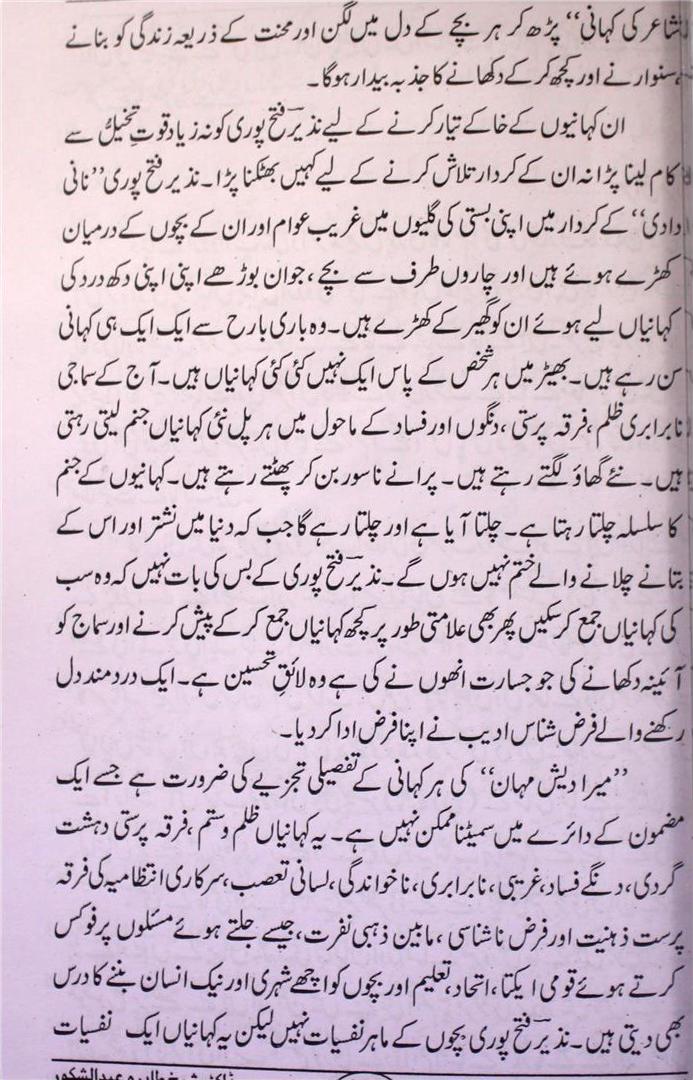 شاعر کی کہانی‘‘ پڑھ کر ہر بچے کے دل میں لگن اور محنت کے ذریعہ زندگی کو بنانے
سنوارنے اور کچھ کر کے دکھانے کا جذبہ بیدار ہوگا۔
ان کہانیوں کے خاکے تیار کرنے کے لیے نذیرؔ فتح پوری کو نہ زیاد قوتِ تخیلُّ سے
کام لینا پڑا نہ ان کے کردار تلاش کرنے کے لیے کہیں بھٹکنا پڑا۔ نذیر فتح پوری’’ نانی
دادی‘‘ کے کردار میں اپنی بستی کی گلیوں میں غریب عوام اور ان کے بچوں کے درمیان
کھڑے ہوئے ہیں اور چاروں طرف سے بچے ، جوان بوڑھے اپنی اپنی دکھ درد کی
کہانیاں لیے ہوئے ان کو گھیر کے کھڑے ہیں۔ وہ باری بارح سے ایک ایک ہی کہانی
سن رہے ہیں۔ بھیڑ میں ہر شخص کے پاس ایک نہیں کئی کئی کہانیاں ہیں۔ آج کے سماجی
نابرابری ظلم ، فرقہ پرستی ، دنگوں اور فساد کے ماحول میں ہر پل نئی کہانیاں جنم لیتی رہتی
ہیں۔ نئے گھاؤ لگتے رہتے ہیں۔ پرانے ناسور بن کر پھٹتے رہتے ہیں۔ کہانیوں کے جنم
کا سلسلہ چلتا رہتا ہے۔ چلتا آیا ہے اور چلتا رہے گا جب کہ دنیا میں نشتر اور اس کے
بتانے چلانے والے ختم نہیں ہوں گے۔ نذیرؔ فتح پوری کے بس کی بات نہیں کہ وہ سب
کی کہانیاں جمع کر سکیں پھر بھی علامتی طور پر کچھ کہانیاں جمع کر کے پیش کرنے اور سماج کو
آئینہ دکھانے کی جو جسارت انھوں نے کی ہے وہ لائقِ تحسین ہے۔ ایک درد مند دل
رکھنے والے فرض شناس ادیب نے اپنا فرض ادا کر دیا۔
’’میرا دیش مہان‘‘ کی ہر کہانی کے تفصیلی تجزیے کی ضرورت ہے جسے ایک
مضمون کے دائرے میں سمیٹنا ممکن نہیں ہے۔ یہ کہانیاں ظلم و ستم ، فرقہ پرستی دہشت
گردی ، دنگے فساد، غریبی ، نابرابری، ناخواندگی، لسانی تعصب، سرکاری انتظامیہ کی فرقہ
پرست ذہنیت اور فرض ناشناسی ، مابین ذہبی نفرت، جیسے جلتے ہوئے مسئلوں پر فوکس
کرتے ہوئے قومی ایکتا، اتحاد، تعلیم اور بچوں کو اچھے شہری اور نیک انسان بننے کا درس
بھی دیتی ہیں۔ نذیرؔ فتح پوری بچوں کے ماہر نفسیات نہیں لیکن یہ کہانیاں ایک نفسیات